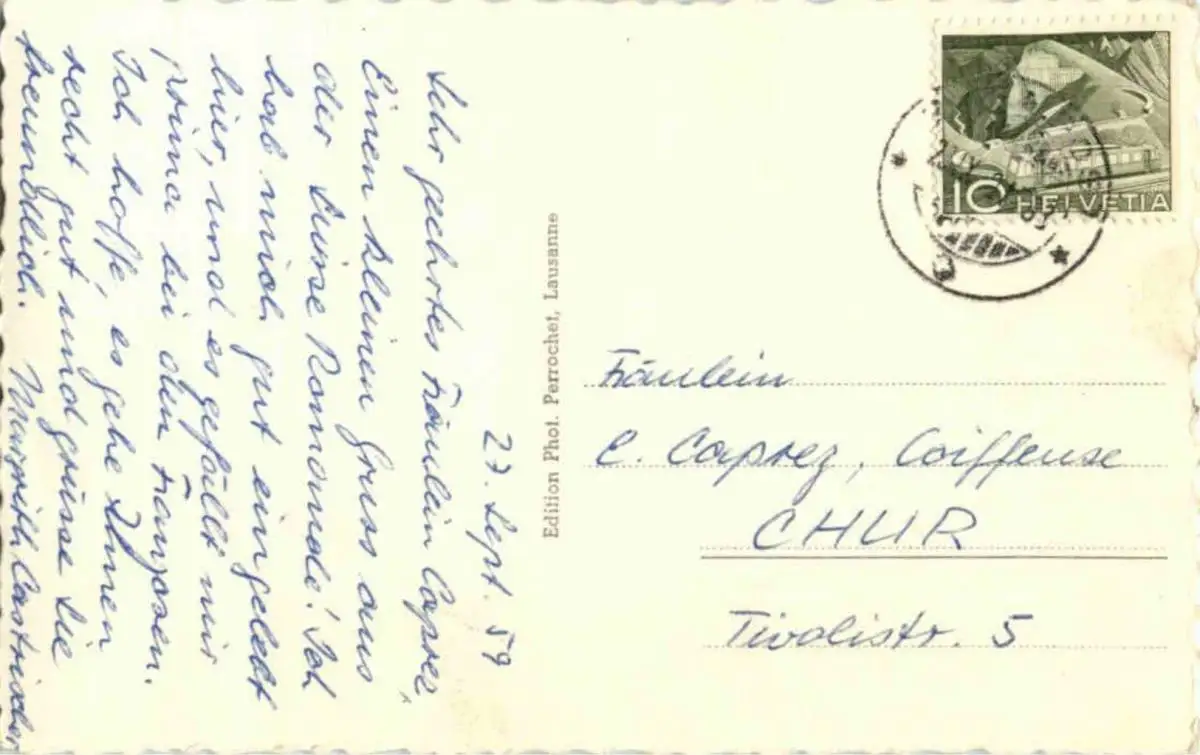 27. Sept. 59
Sehr geehrtes Fräulein Caprez,
Einen kleinen Gruss aus
der Suisse Romande! Ich
hab mich gut eingelebt
hier, und es gefällt mir
prima bei den Franzosen.
Ich hoffe, es gehe Ihnen
recht gut und grüsse Sie
freundlich. Margrith Castrischer
Edition Phot. Perrochet, Lausanne
10 HELVETIA
Fräulein
C. Caprez, Coiffeuse
CHUR
Tivolistr. 5